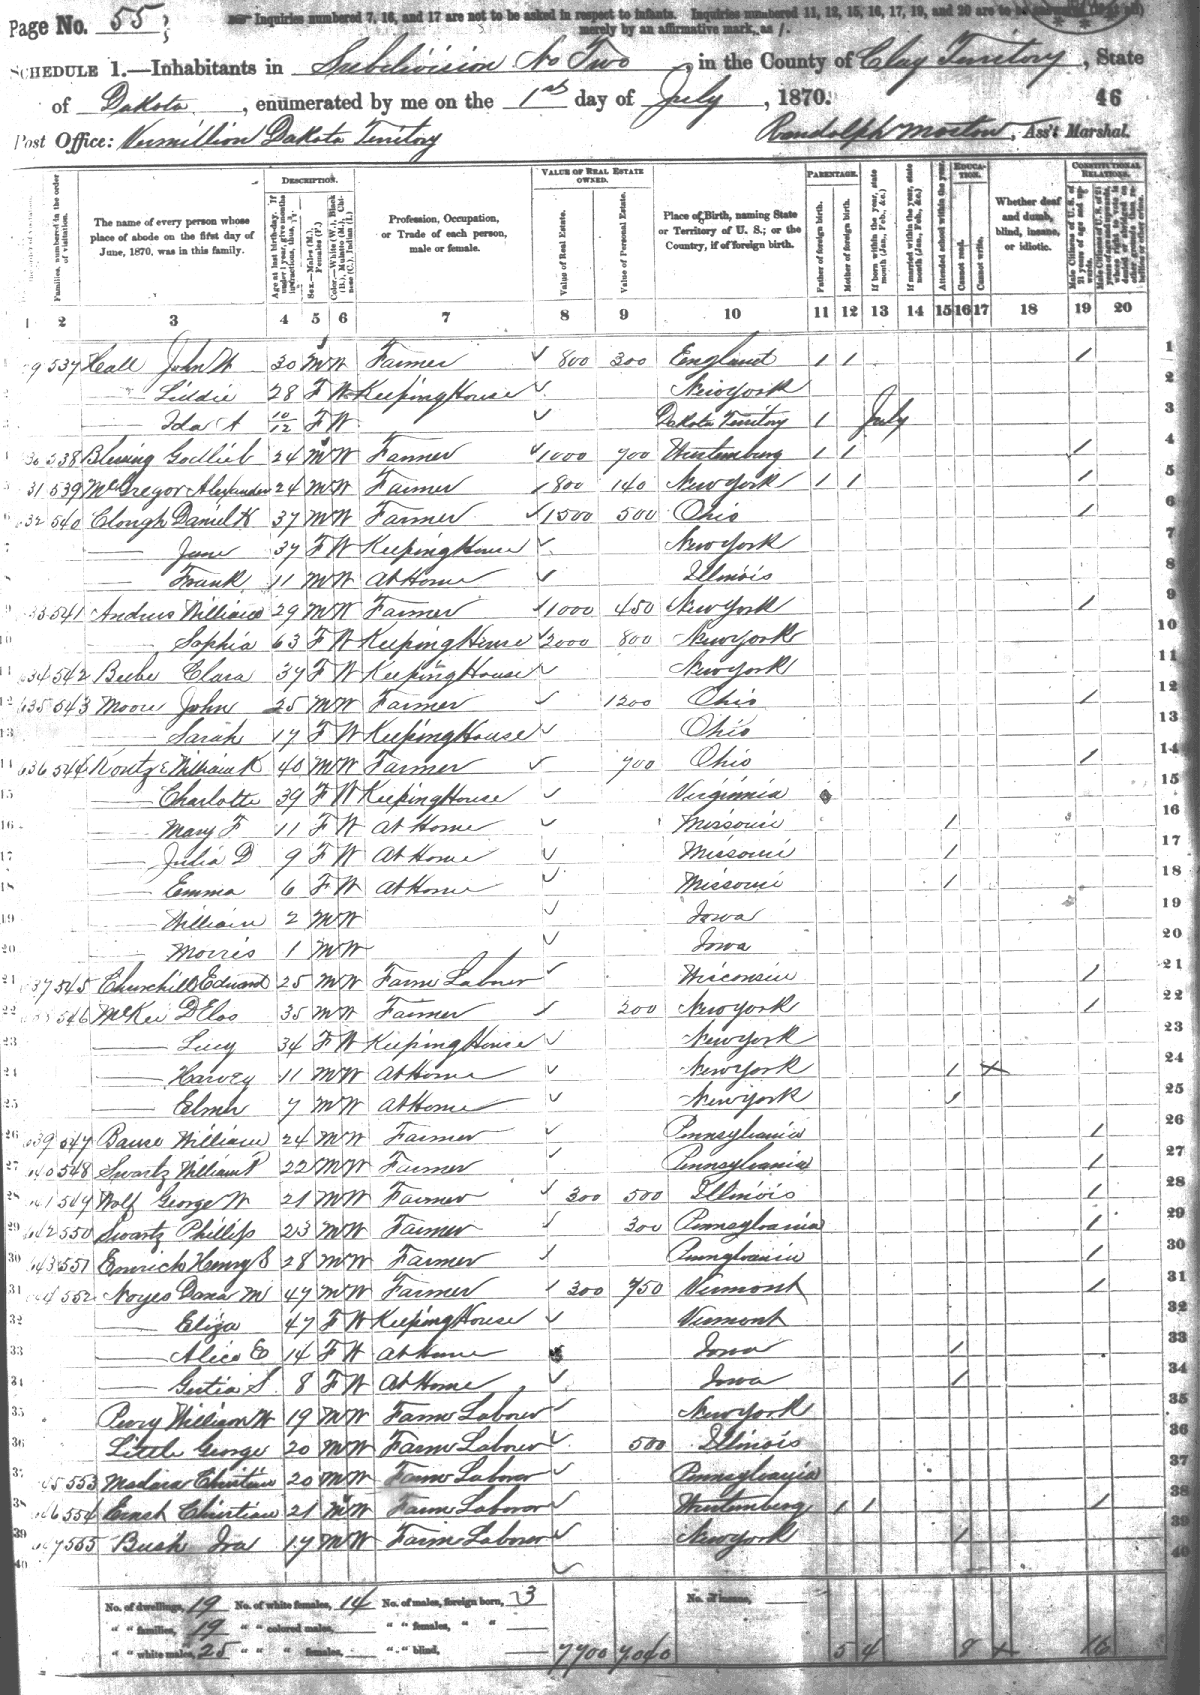 Page No. 55
Inquiries numbered 7, 16, and 17 are not to be asked in respect to infants. Inquiries numbered 11, 12, 15, 16, 17, 19, and 20 are to be
merely by an affirmative mark, as /.
SCHEDULE 1.—Inhabitants in Subdivision No Two, in the County of Clay Territory, State
of Dakota, enumerated by me on the 1st day of July, 1870. 46
Post Office: Vermillion Dakota Territory Randolph Morton, Ass't Marshal.
DESCRIPTION. VALUE OF REAL ESTATE OWNED. PARENTAGE. EDUCATION. CONSTITUTIONAL RELATIONS.
Families, numbered in the order of visitation.
The name of every person whose place of abode on the first day of June, 1870, was in this family.
Age at last birth-day. If under 1 year, give months in fractions, thus,
Sex.—Males (M.), Females (F.)
Color.—White (W.), Black (B.), Mulatto (M.), Chinese (C.), Indian (I.)
Profession, Occupation, or Trade of each person, male or female.
Value of Real Estate.
Value of Personal Estate.
Place of Birth, naming State or Territory of U. S.; or the Country, if of foreign birth.
Father of foreign birth.
Mother of foreign birth.
If born within the year, state month (Jan., Feb., &c.)
If married within the year, state month (Jan., Feb., &c.)
Attended school within the year.
Cannot read.
Cannot write.
Whether deaf and dumb, blind, insane, or idiotic.
Male Citizens of U. S. of 21 years of age and upwards.
1 2 3 4 5 6 7 8 9 10 11 12 13 14 15 16 17 18 19 20
537 Hall John W 30 M W Farmer ✓ 800 300 England 1 1 1 1
2 — Liddie 28 F W Keeping House ✓ New York 2
— Ida A 10/12 F W ✓ Dakota Territory 1 July 3
538 Blessing Godlieb 24 M W Farmer ✓ 1000 700 Wurtemburg 1 1 1 4
31 539 McGregor Alexander 24 M W Farmer ✓ 800 140 New York 1 1 1 5
6 32 540 Clough Daniel K 37 M W Farmer ✓ 1500 500 Ohio 1 6
7 — Jane 37 F W Keeping House ✓ New York 7
8 — Frank 11 M W At Home ✓ Illinois 8
9 33 541 Andrus William 29 M W Farmer ✓ 1000 450 New York 1 9
10 — Sophia 63 F W Keeping House ✓ 2000 800 New York 10
11 634 542 Beebe Clara 37 F W Keeping House ✓ New York 11
12 635 543 Moore John 25 M W Farmer ✓ 1200 Ohio 1 12
13 — Sarah 17 F W Keeping House ✓ Ohio 13
14 636 544 Kountz William K 40 M W Farmer ✓ 700 Ohio 1 14
15 — Charlotte 39 F W Keeping House ✓ Virginnia 15
16 — Mary F 11 F W At Home ✓ Missouri 1 16
17 — Julia D 9 F W At Home ✓ Missouri 1 17
18 — Emma 6 F W At Home ✓ Missouri 1 18
19 — William 2 M W ✓ Iowa 19
20 — Morris 1 M W ✓ Iowa 20
21 637 545 Churchill Edward 25 M W Farm Laborer ✓ Wisconsin 1 21
22 546 McKee DElos 35 M W Farmer ✓ 200 New York 1 22
23 — Lucy 34 F W Keeping House ✓ New York 23
24 — Harvey 11 M W At Home ✓ New York 1 × 24
25 — Elmer 7 M W At Home ✓ New York 1 25
26 639 547 William 24 M W Farmer ✓ Pennsylvania 1 26
27 640 548 Swartz William P 22 M W Farmer ✓ Pennsylvania 1 27
28 641 549 Wolf George W 21 M W Farmer ✓ 300 500 Illinois 1 28
29 642 550 Swartz Phillip 23 M W Farmer ✓ 300 Pennsylvania 1 29
30 643 551 Emrich Henry S 28 M W Farmer ✓ Pennsylvania 1 30
31 552 Noyes Dana M 47 M W Farmer ✓ 300 750 Vermont 1 31
32 — Eliza 47 F W Keeping House ✓ Vermont 32
33 — Alice E 14 F W At Home Iowa 1 33
34 — Gertia S 8 F W At Home ✓ Iowa 1 34
35 William W 19 M W Farm Laborer ✓ New York 35
36 Little George 20 M W Farm Laborer ✓ 500 Illinois 36
37 553 Madara Christian 20 M W Farm Laborer ✓ Pennsylvania 37
38 554 Ernst Christian 21 M W Farm Laborer ✓ Wurtemberg 1 1 1 38
39 555 Bush Ira 17 M W Farm Laborer ✓ New York 1 39
40 ✓ 40
No. of dwellings, 19 No. of white females, 14 No. of males, foreign born, 3 No. of insane,
" " families, 19 " " colored males, " " females, " "
" " white males, 25 " " " females, " " blind, 7700 7040 5 4 8 × 16